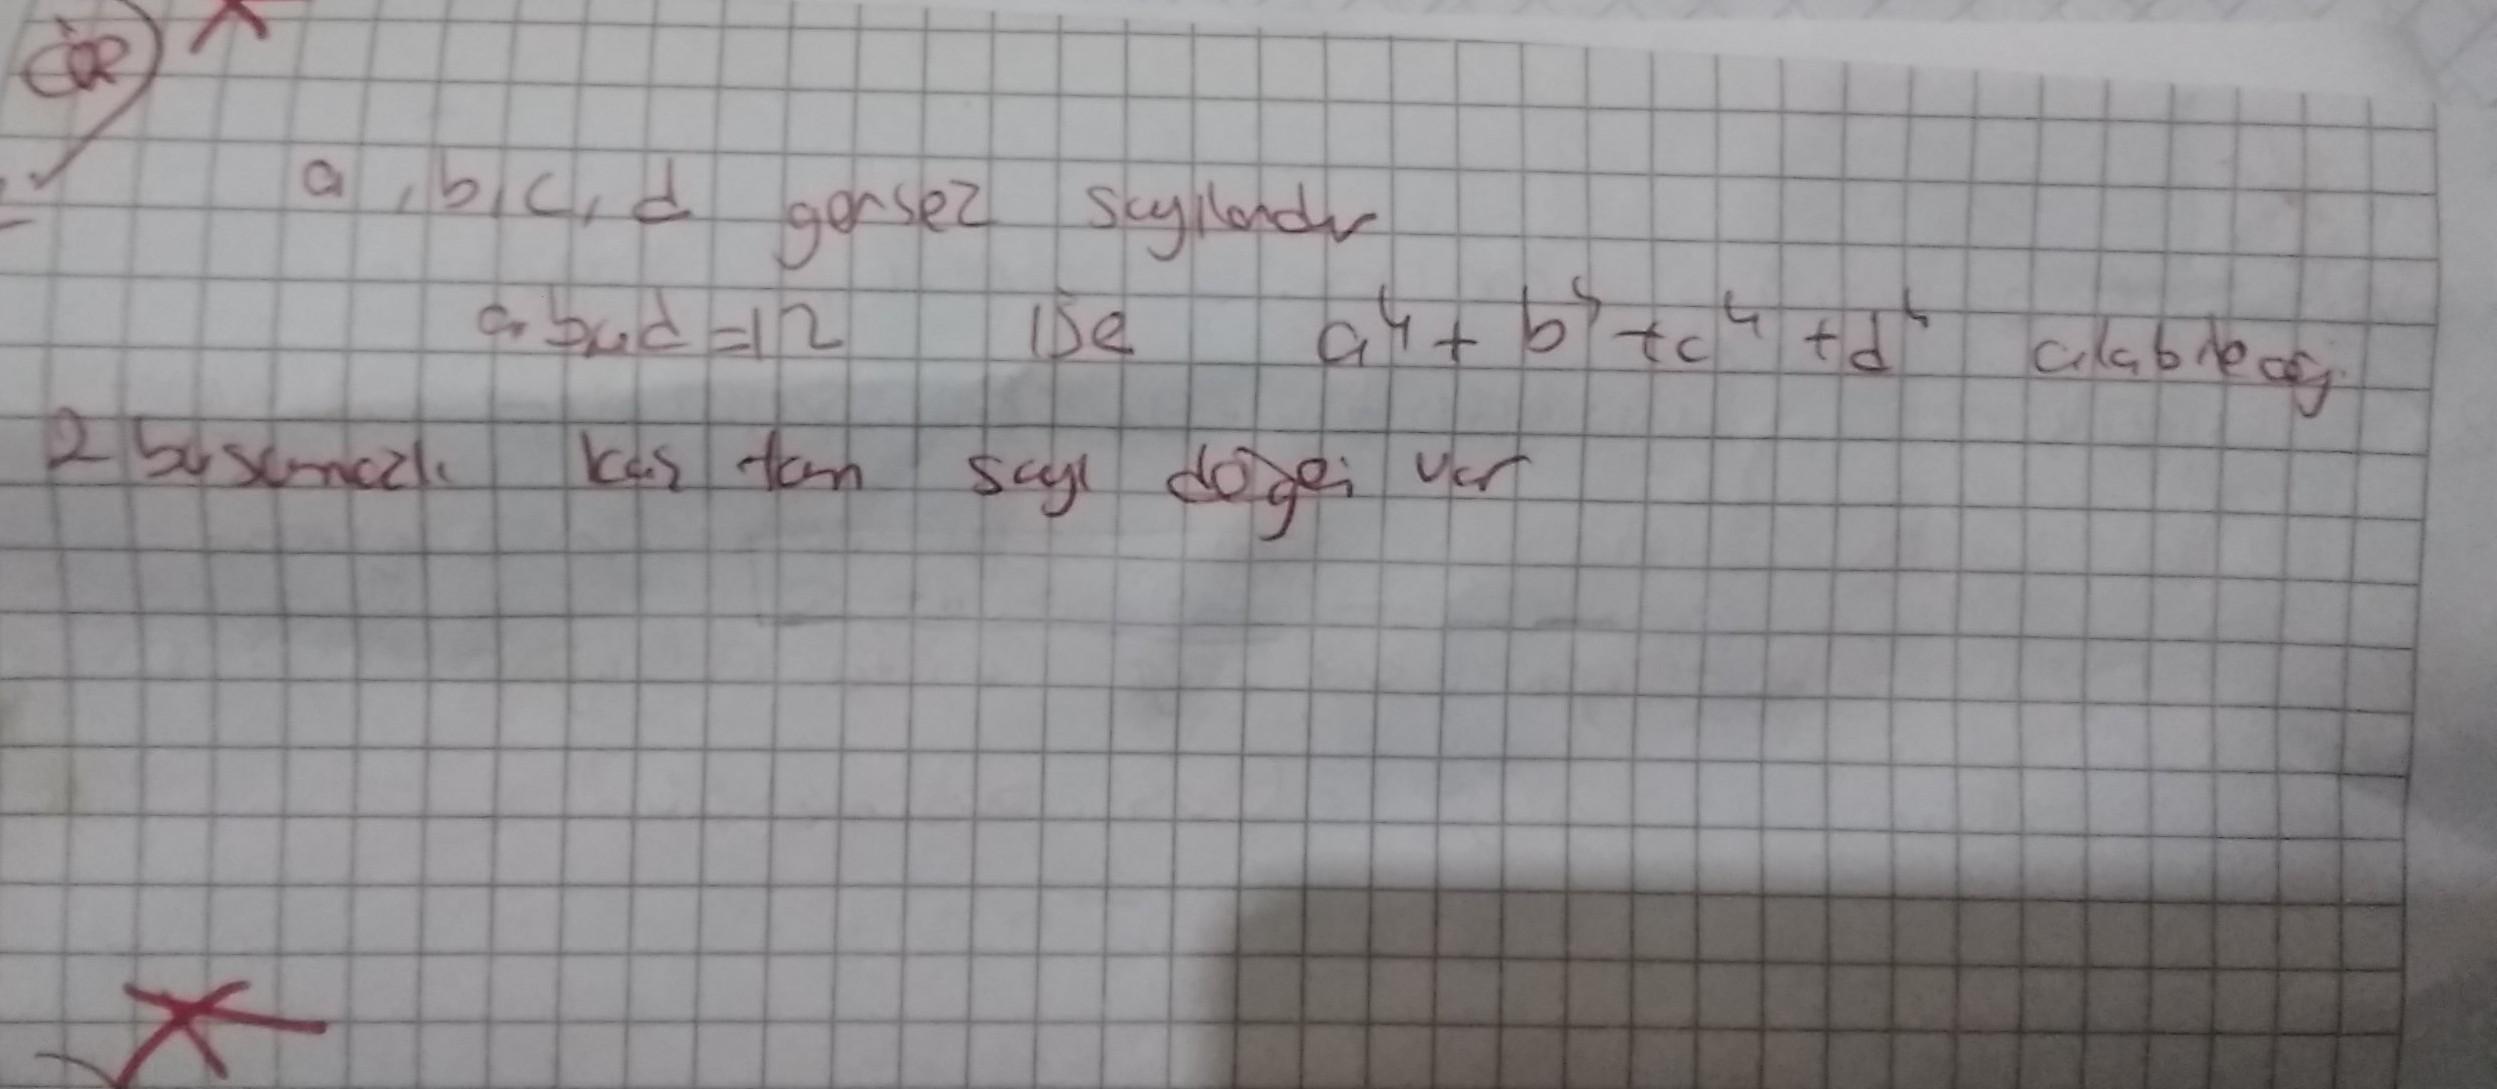 ÖR
a, b, c, d gerçel sayılardır
a.b.c.d=12 ise a⁴ + b⁴ + c⁴ + d⁴ alabileceği
2 basamaklı kaç tam sayı değeri var